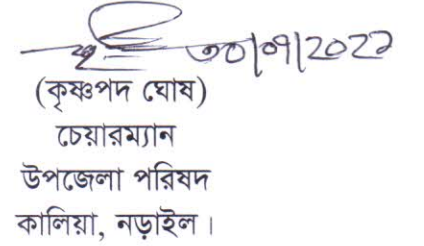 ৩০/০৭/২০২২
(কৃষ্ণপদ ঘোষ)
চেয়ারম্যান
উপজেলা পরিষদ
কালিয়া, নড়াইল।